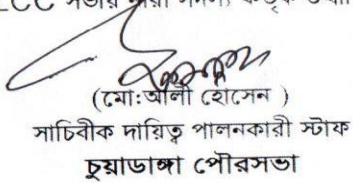 (মো:আলী হোসেন )
সাচিবীক দায়িত্ব পালনকারী স্টাফ
চুয়াডাঙ্গা পৌরসভা